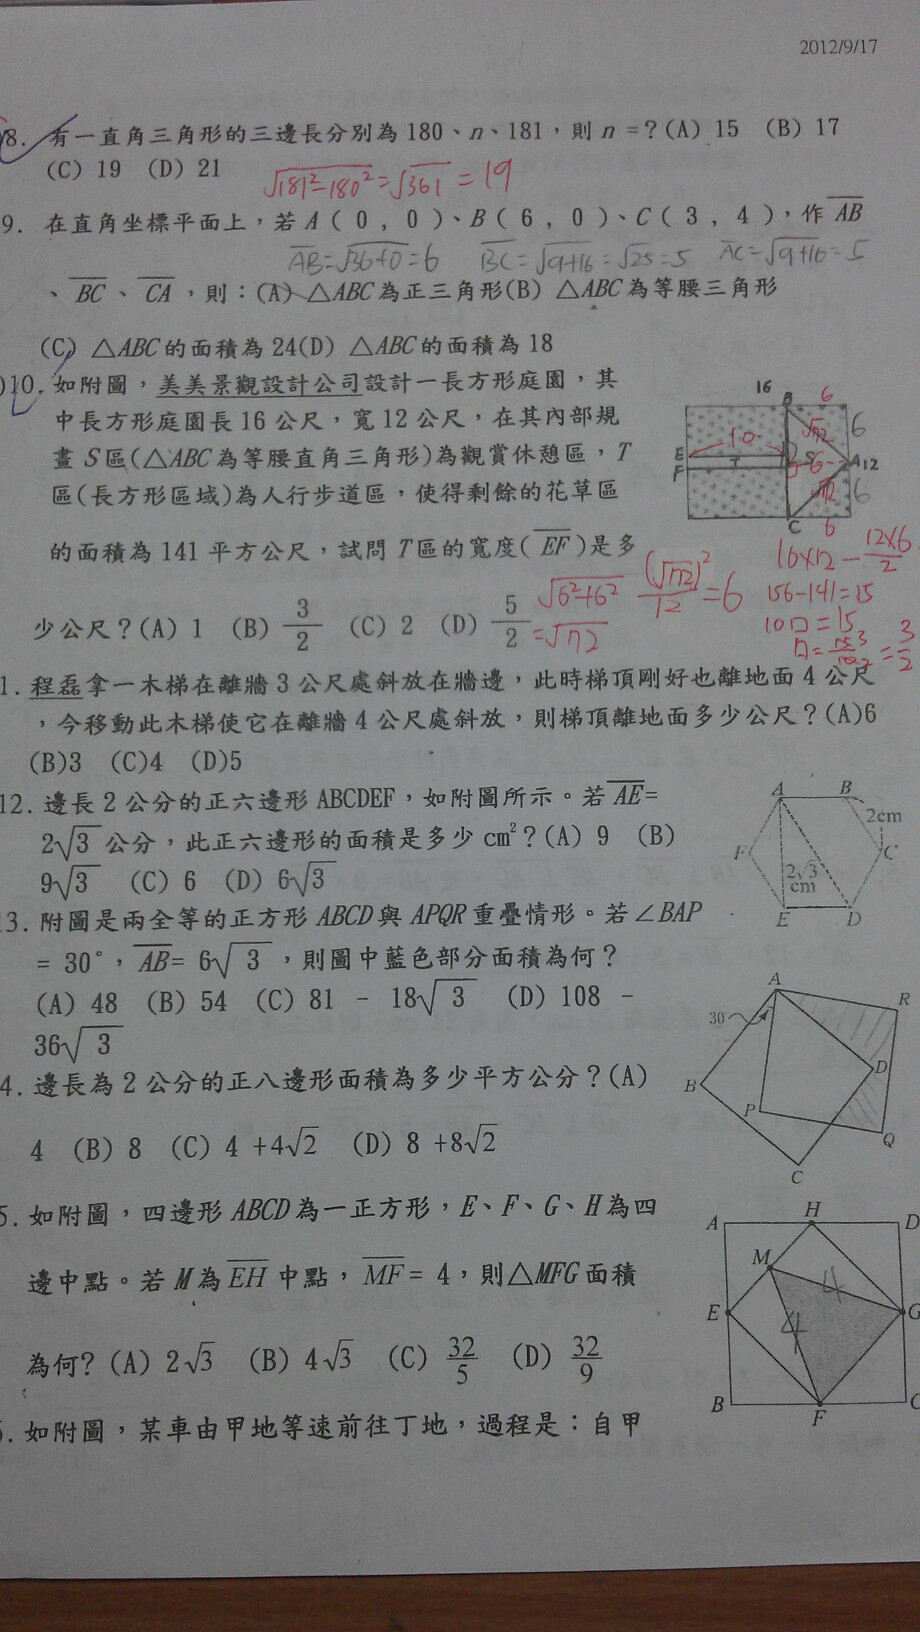 2012/9/17
8. 有一直角三角形的三邊長分別為 180、n、181，則 n =？(A) 15 (B) 17
(C) 19 (D) 21
√181²-180² = √361 = 19
9. 在直角坐標平面上，若 A ( 0 , 0 )、B ( 6 , 0 )、C ( 3 , 4 )，作 AB
AB=√36+0=6 BC=√9+16=√25=5 AC=√9+16=5
、BC、CA，則：(A) △ABC 為正三角形(B) △ABC 為等腰三角形
(C) △ABC 的面積為 24(D) △ABC 的面積為 18
10. 如附圖，美美景觀設計公司設計一長方形庭園，其
中長方形庭園長 16 公尺，寬 12 公尺，在其內部規
畫 S 區(△ABC 為等腰直角三角形)為觀賞休憩區，T
區(長方形區域)為人行步道區，使得剩餘的花草區
的面積為 141 平方公尺，試問 T 區的寬度( EF )是多
少公尺？(A) 1 (B) 3/2 (C) 2 (D) 5/2
16 B 6
√72 6
E 10 S A 12
F T 6
√72 6
C 6
√6²+6²
=√72
(√72)²/12 = 6
16×12 - 12×6/2
156-141=15
10口=15
口=15/10=3/2
1. 程磊拿一木梯在離牆 3 公尺處斜放在牆邊，此時梯頂剛好也離地面 4 公尺
，今移動此木梯使它在離牆 4 公尺處斜放，則梯頂離地面多少公尺？(A)6
(B)3 (C)4 (D)5
12. 邊長 2 公分的正六邊形 ABCDEF，如附圖所示。若 AE=
2√3 公分，此正六邊形的面積是多少 cm²？(A) 9 (B)
9√3 (C) 6 (D) 6√3
A B
2cm
F C
2√3
cm
E D
13. 附圖是兩全等的正方形 ABCD 與 APQR 重疊情形。若∠BAP
= 30°，AB= 6√3 ，則圖中藍色部分面積為何？
(A) 48 (B) 54 (C) 81 - 18√3 (D) 108 -
36√3
A
R
30°
D
B
P
Q
C
4. 邊長為 2 公分的正八邊形面積為多少平方公分？(A)
4 (B) 8 (C) 4 +4√2 (D) 8 +8√2
5. 如附圖，四邊形 ABCD 為一正方形，E、F、G、H 為四
邊中點。若 M 為 EH 中點，MF = 4，則△MFG 面積
為何? (A) 2√3 (B) 4√3 (C) 32/5 (D) 32/9
A H D
M 4
E 4 G
B F C
6. 如附圖，某車由甲地等速前往丁地，過程是：自甲